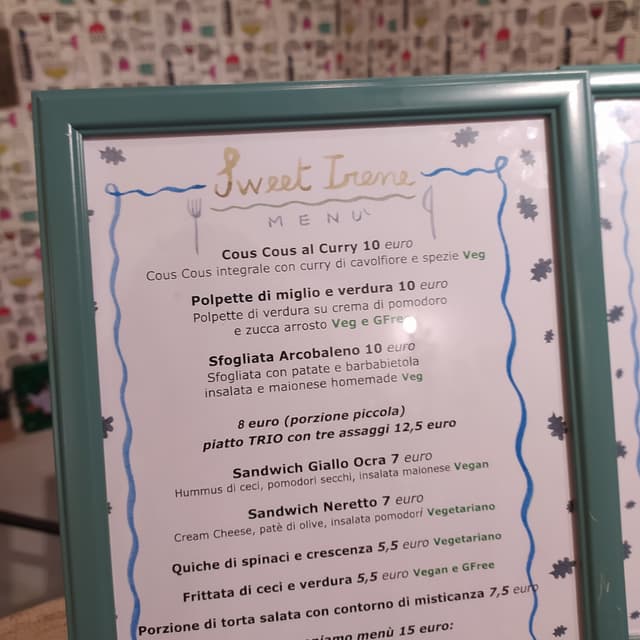 Sweet Irene
MENU'
Cous Cous al Curry 10 euro
Cous Cous integrale con curry di cavolfiore e spezie Veg
Polpette di miglio e verdura 10 euro
Polpette di verdura su crema di pomodoro
e zucca arrosto Veg e GFree
Sfogliata Arcobaleno 10 euro
Sfogliata con patate e barbabietola
insalata e maionese homemade Veg
8 euro (porzione piccola)
piatto TRIO con tre assaggi 12,5 euro
Sandwich Giallo Ocra 7 euro
Hummus di ceci, pomodori secchi, insalata maionese Vegan
Sandwich Neretto 7 euro
Cream Cheese, patè di olive, insalata pomodori Vegetariano
Quiche di spinaci e crescenza 5,5 euro Vegetariano
Frittata di ceci e verdura 5,5 euro Vegan e GFree
Porzione di torta salata con contorno di misticanza 7,5 euro
menù 15 euro: